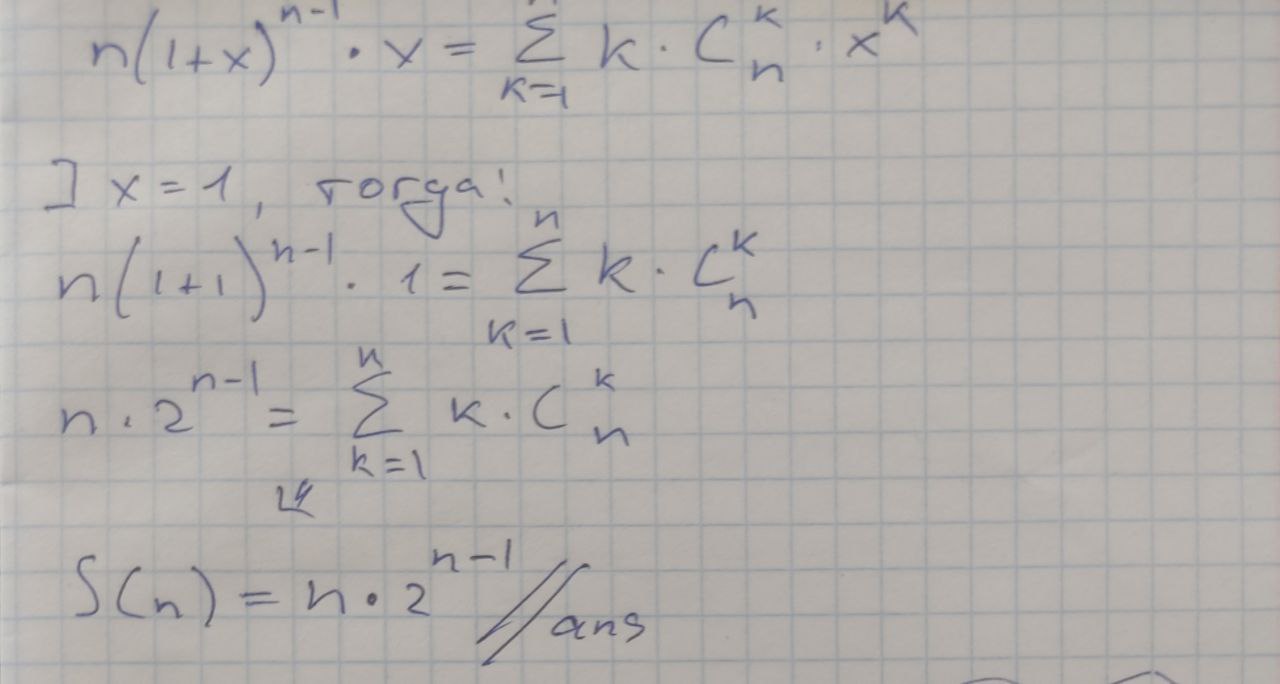 n(1+x)^{n-1} · x = \sum_{k=1}^{n} k · C_n^k · x^k
] x = 1, тогда:
n(1+1)^{n-1} · 1 = \sum_{k=1}^{n} k · C_n^k
n · 2^{n-1} = \sum_{k=1}^{n} k · C_n^k
⇙
S(n) = n · 2^{n-1} // ans